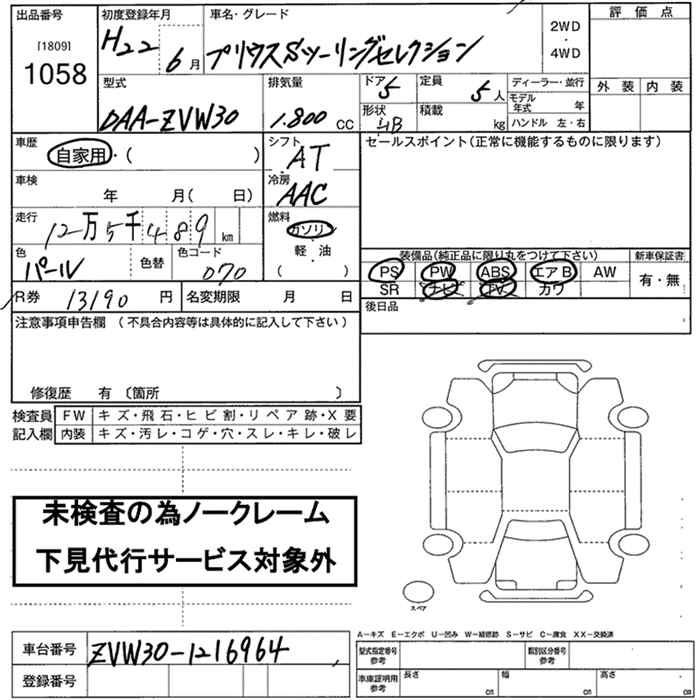 出品番号 初度登録年月 車名・グレード 評価点
[1809]
1058
H22 6月 プリウスSツーリングセレクション 2WD・4WD
外装 内装
型式 排気量 ドア 5 定員 5人 ディーラー・並行
DAA-ZVW30 1.800 CC 形状 積載 kg モデル年式 年
ハンドル 左・右
車歴 自家用・( ) シフト AT セールスポイント(正常に機能するものに限ります)
車検 年 月( 日) 冷房 AAC
走行 12万5千489km 燃料 ガソリン
軽油
( )
色 パール 色替 色コード 070
装備品(純正品に限り丸をつけて下さい) 新車保証書
PS PW ABS エアB AW 有・無
SR ナビ TV カワ
R券 13190円 名変期限 月 日 後日品
注意事項申告欄 (不具合内容等は具体的に記入して下さい)
修復歴 有 (箇所 )
検査員 FW キズ・飛石・ヒビ割・リペア跡・X要
記入欄 内装 キズ・汚レ・コゲ・穴・スレ・キレ・破レ
未検査の為ノークレーム
下見代行サービス対象外
スペア
A-キズ E-エクボ U-凹み W-補修跡 S-サビ C-腐食 XX-交換済
車台番号 ZVW30-1216964 型式指定番号 参考 類別区分番号 参考
登録番号 車庫証明用 参考 長さ cm 幅 cm 高さ cm